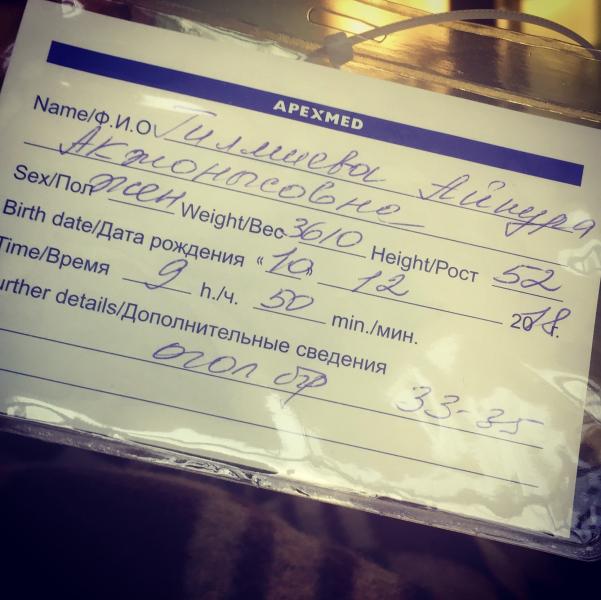 APEXMED
Name/Ф.И.О. Гилмиева Айнура
Акжонысовна
Sex/Пол жен Weight/Вес 3610 Height/Рост 52
Birth date/Дата рождения «10» 12 2018г.
Time/Время 9 h./ч. 50 min./мин.
urther details/Дополнительные сведения
огол гр 33-35